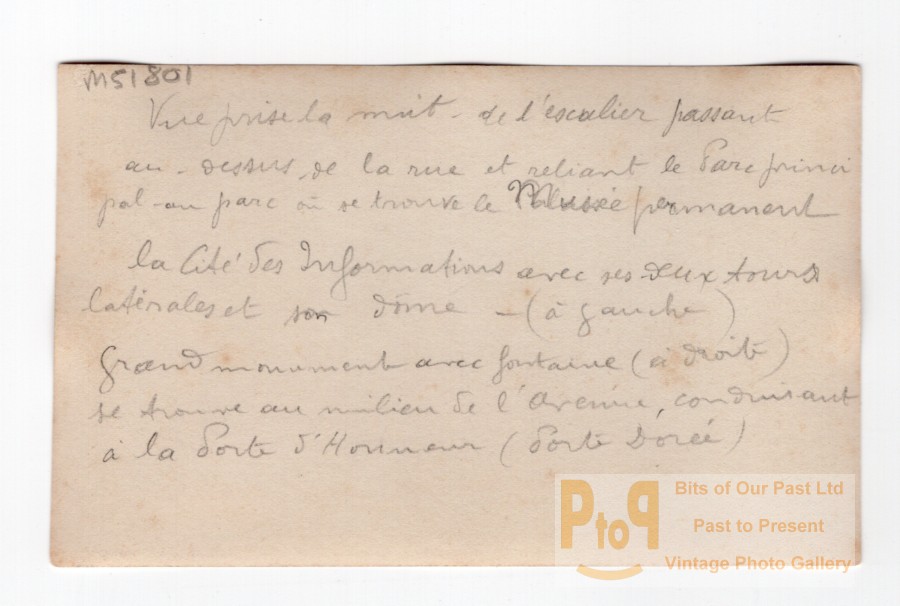 M51801
Vue prise la nuit - de l'escalier passant
au - dessus, de la rue et reliant le Parc princi
pal - au parc où se trouve le Musée permanent
la Cité des Informations avec ses deux tours
latérales et son dôme - (à gauche)
Grand monument avec fontaine (à droite)
se trouve au milieu de l'Avenue, conduisant
à la Porte d'Honneur (Porte Dorée)
PtoP
Bits of Our Past Ltd
Past to Present
Vintage Photo Gallery